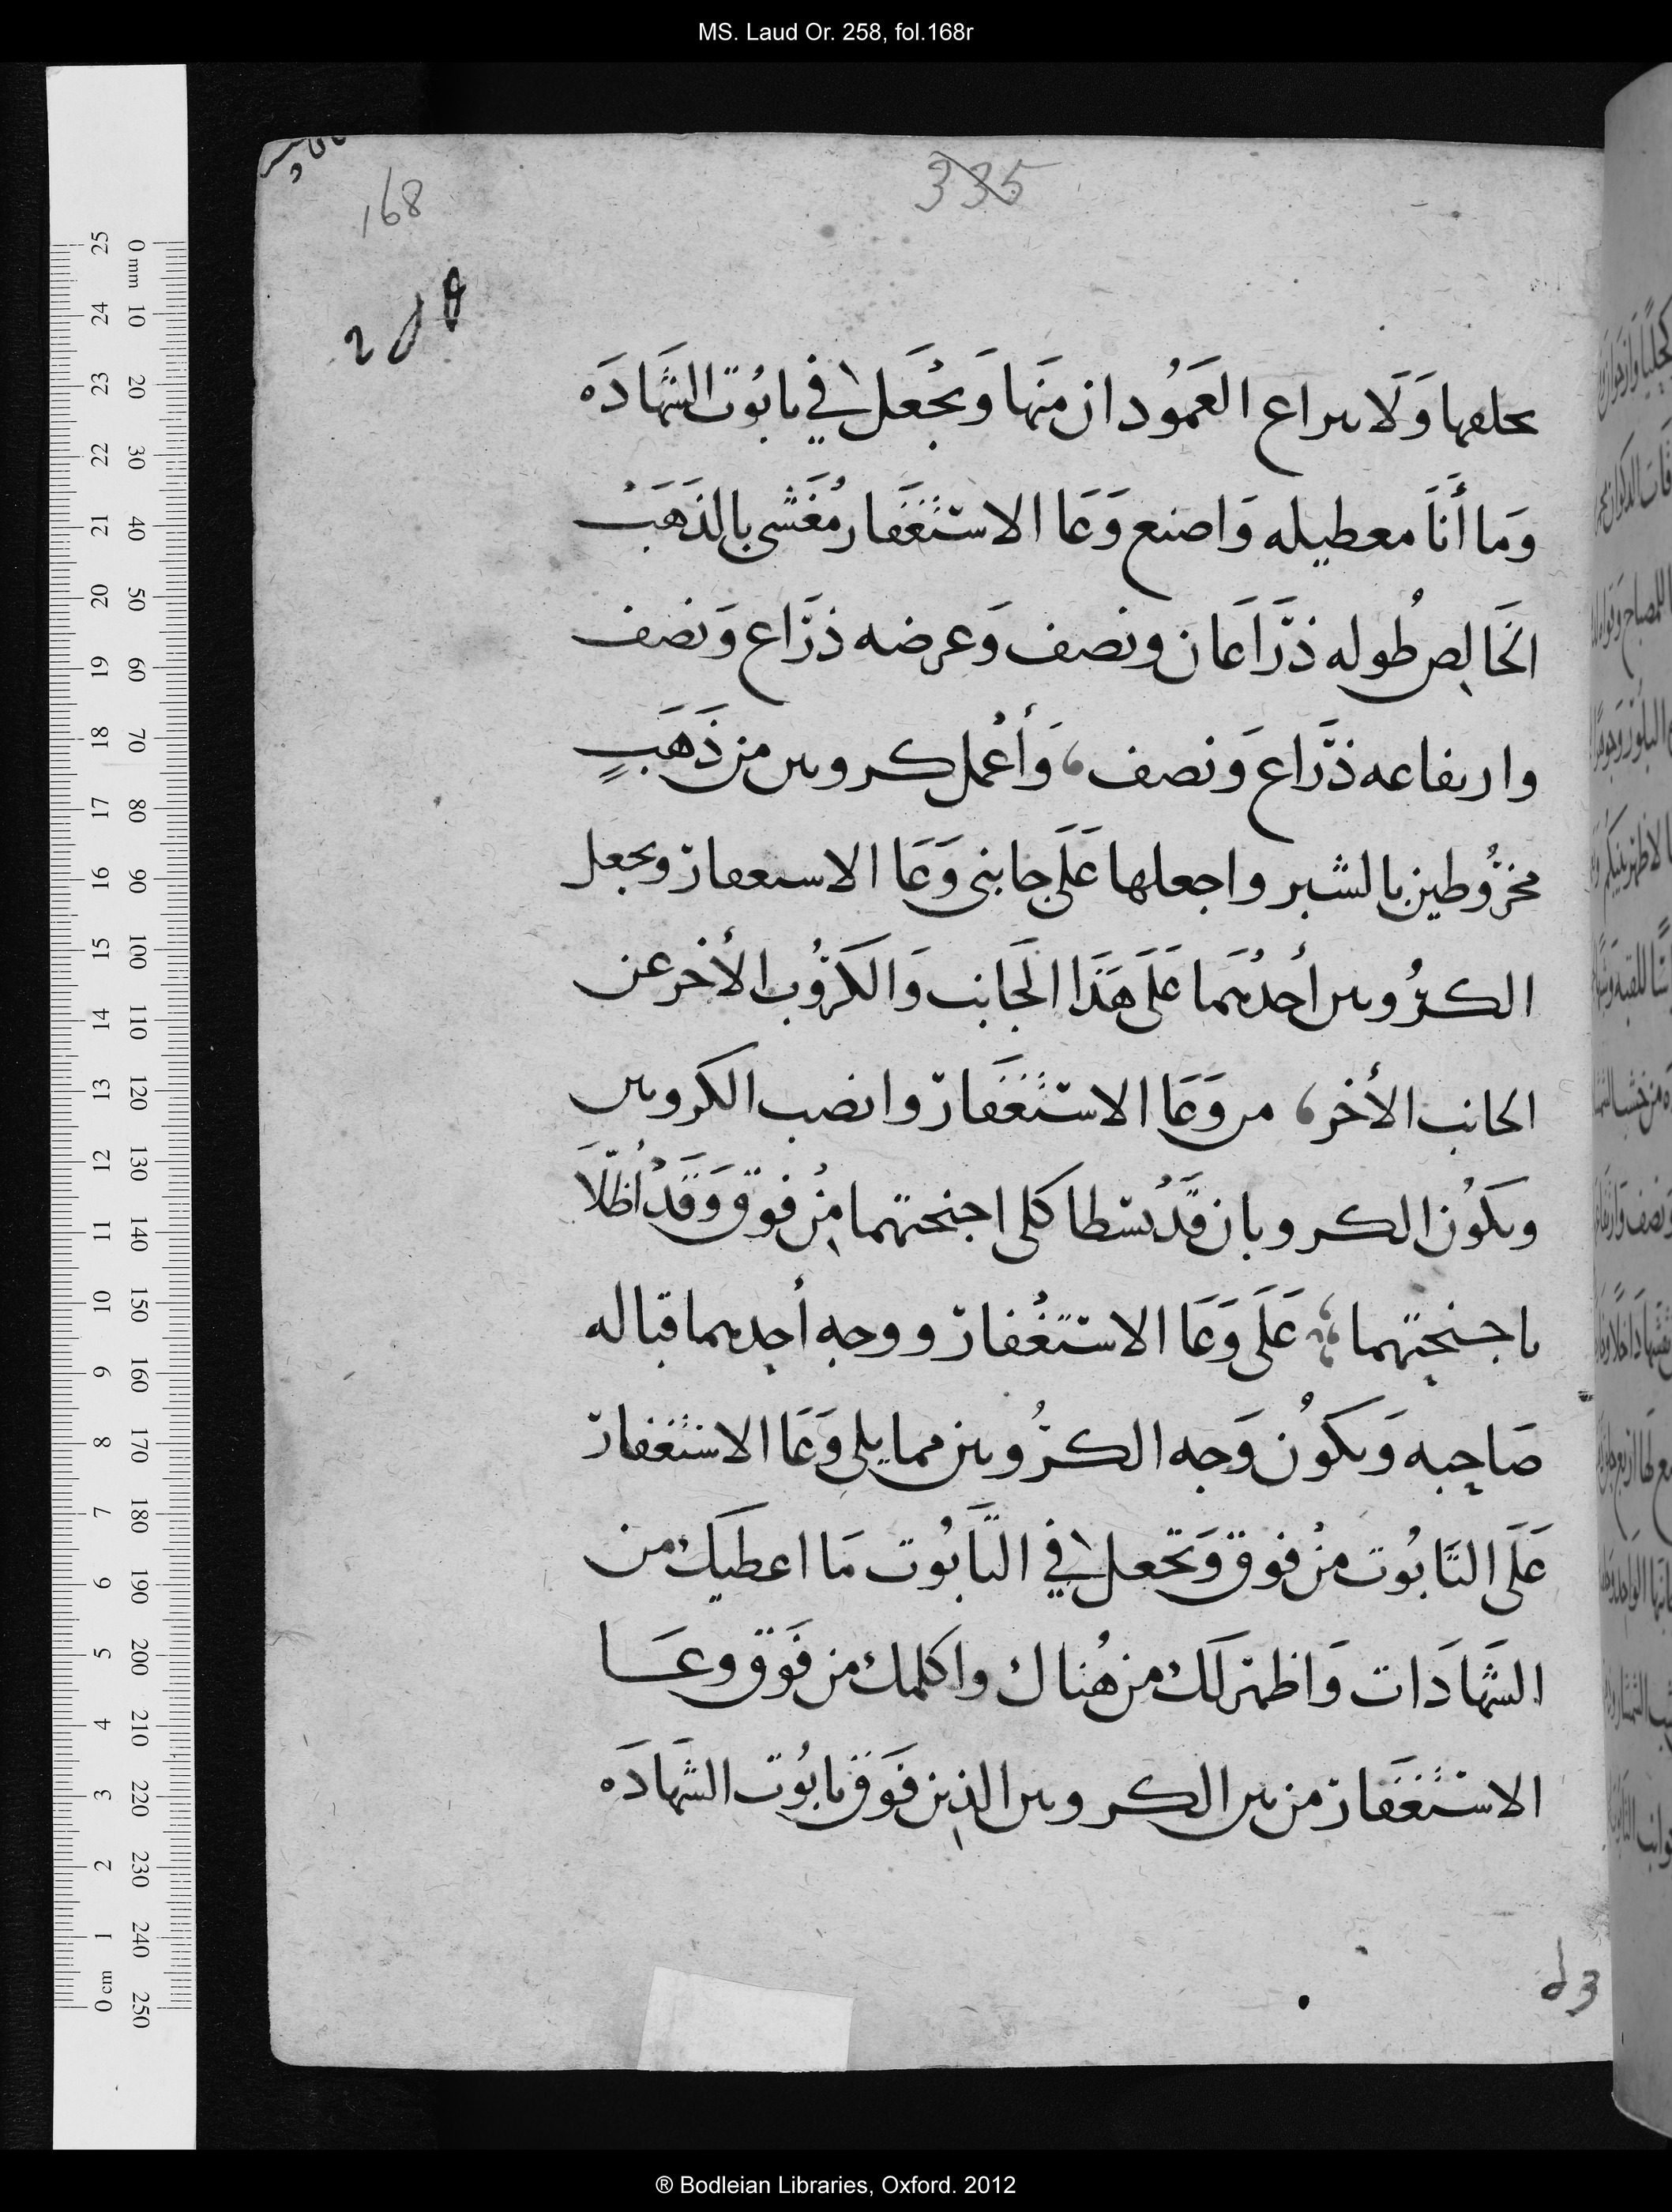 MS. Laud Or. 258, fol.168r
335
168
حلقها وَلَا ىىراع العَمُودان منَها وَيجْعَل في تابُوت الشَهادَه
وَما أنَا معطيله وَاصنع وَعَا الاستْغَفار مُغَشى بالذَهَبْ
الخَالِص طُوله ذرَّاعَان ونصف وَعرضه ذرَّاع وَنصف
وارىفاعه ذرَّاع وَنصف، وَأعْمل كروىىں من ذَهَبٍ
مخرُوطين بالشبر واجعلها عَلَى جانبى وَعَا الاسىعفار ويجعل
الكرُوىىں أحدُهمَا عَلَى هَذا الجَانب وَالكرُوب الأخر عن
الحانب الأخر، مں وَعَا الاستْغفَار وانصب الكروىىں
وىكوُن الكروبان قَدْ بسَطا كلى اجنحتهما مِنْ فوق وَقَدْ اظلّاَ
باجنِحتهما عَلَى وَعَا الاستغْفار ووجه أحِدهما قباله
صَاحِبه وَىكوُن وَجه الكرُوىىن مما يلى وَعَا الاستغفار
عَلَى التَابُوت منْ فوق وَتجعل في التَابُوت مَا اعطيَك من
الشَهادَات وَاظهر لَك من هُناك واكلمك من فَوق وعَا
الاستغفَار من ىىں الكروىىں الذِين فَوق تابُوت الشَهادَه
® Bodleian Libraries, Oxford. 2012